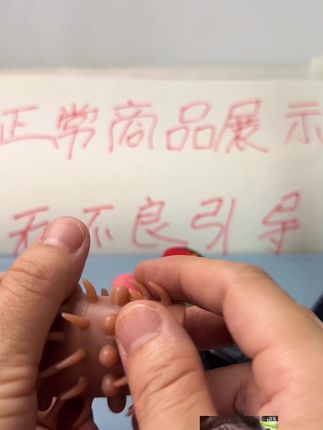 正常商品展示
无不良引导